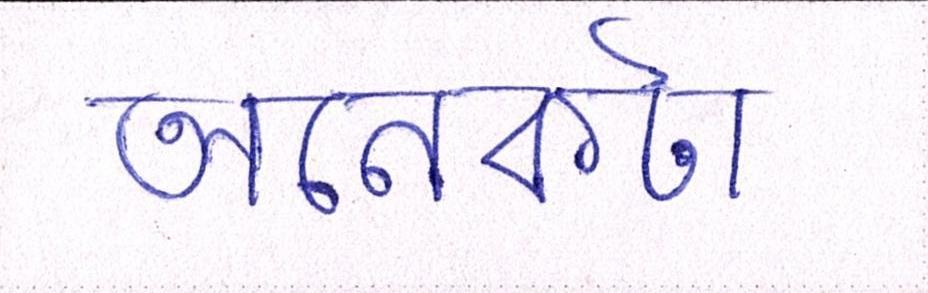 অনেকটা